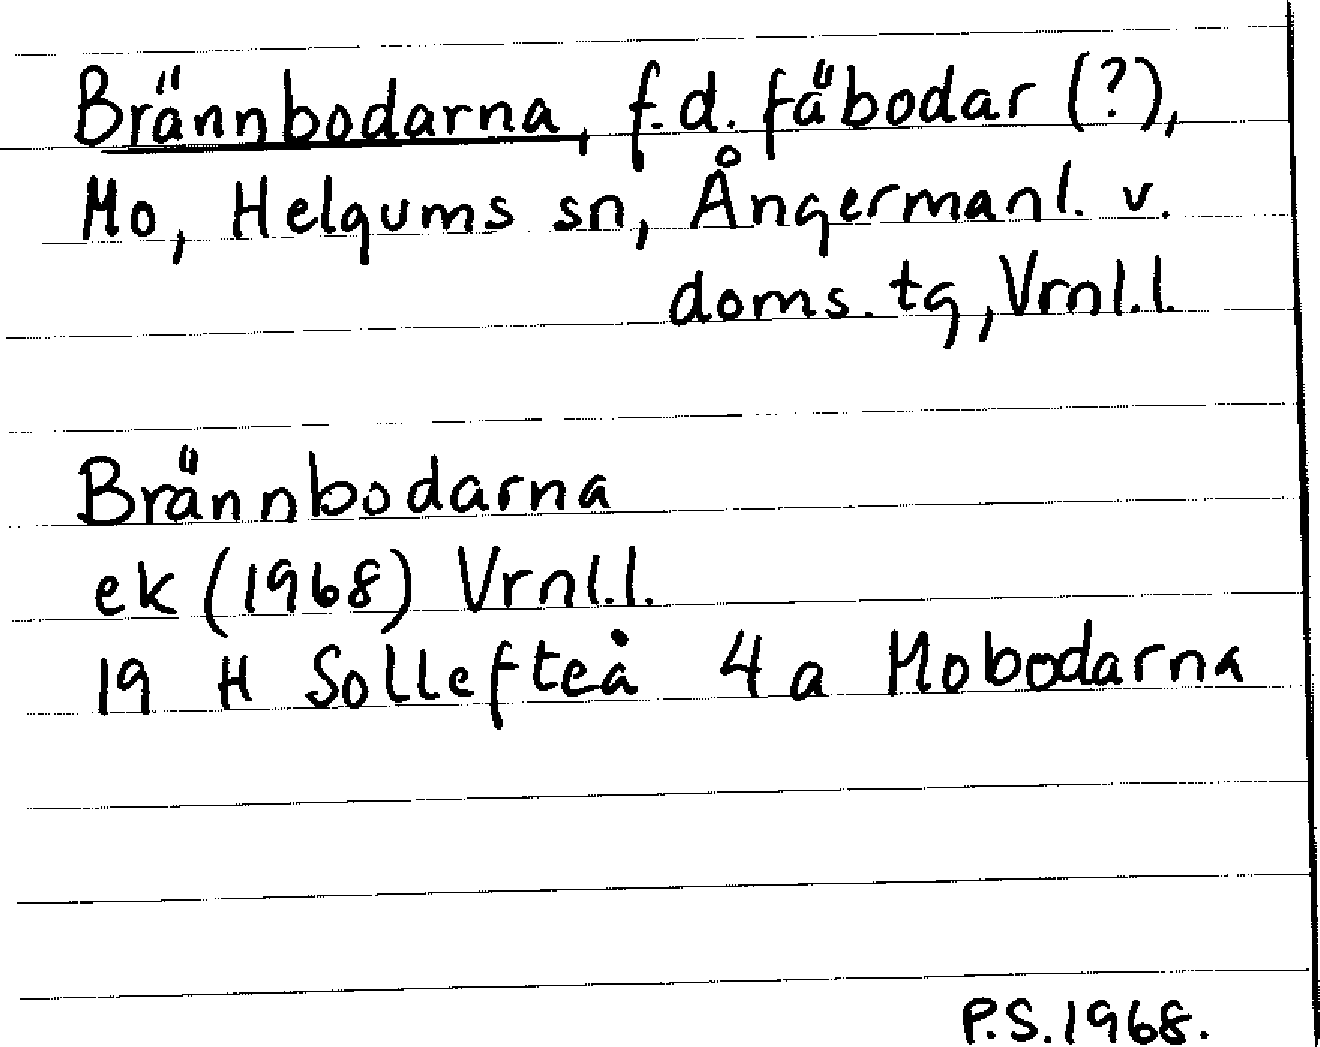 Brännbodarna, f.d. fäbodar (?),
Mo, Helgums sn, Ångermanl. v.
doms. tg, Vrnl.l.
Brännbodarna
ek (1968) Vrnl.l.
19 H Sollefteå 4 a Mobodarna
P.S. 1968.